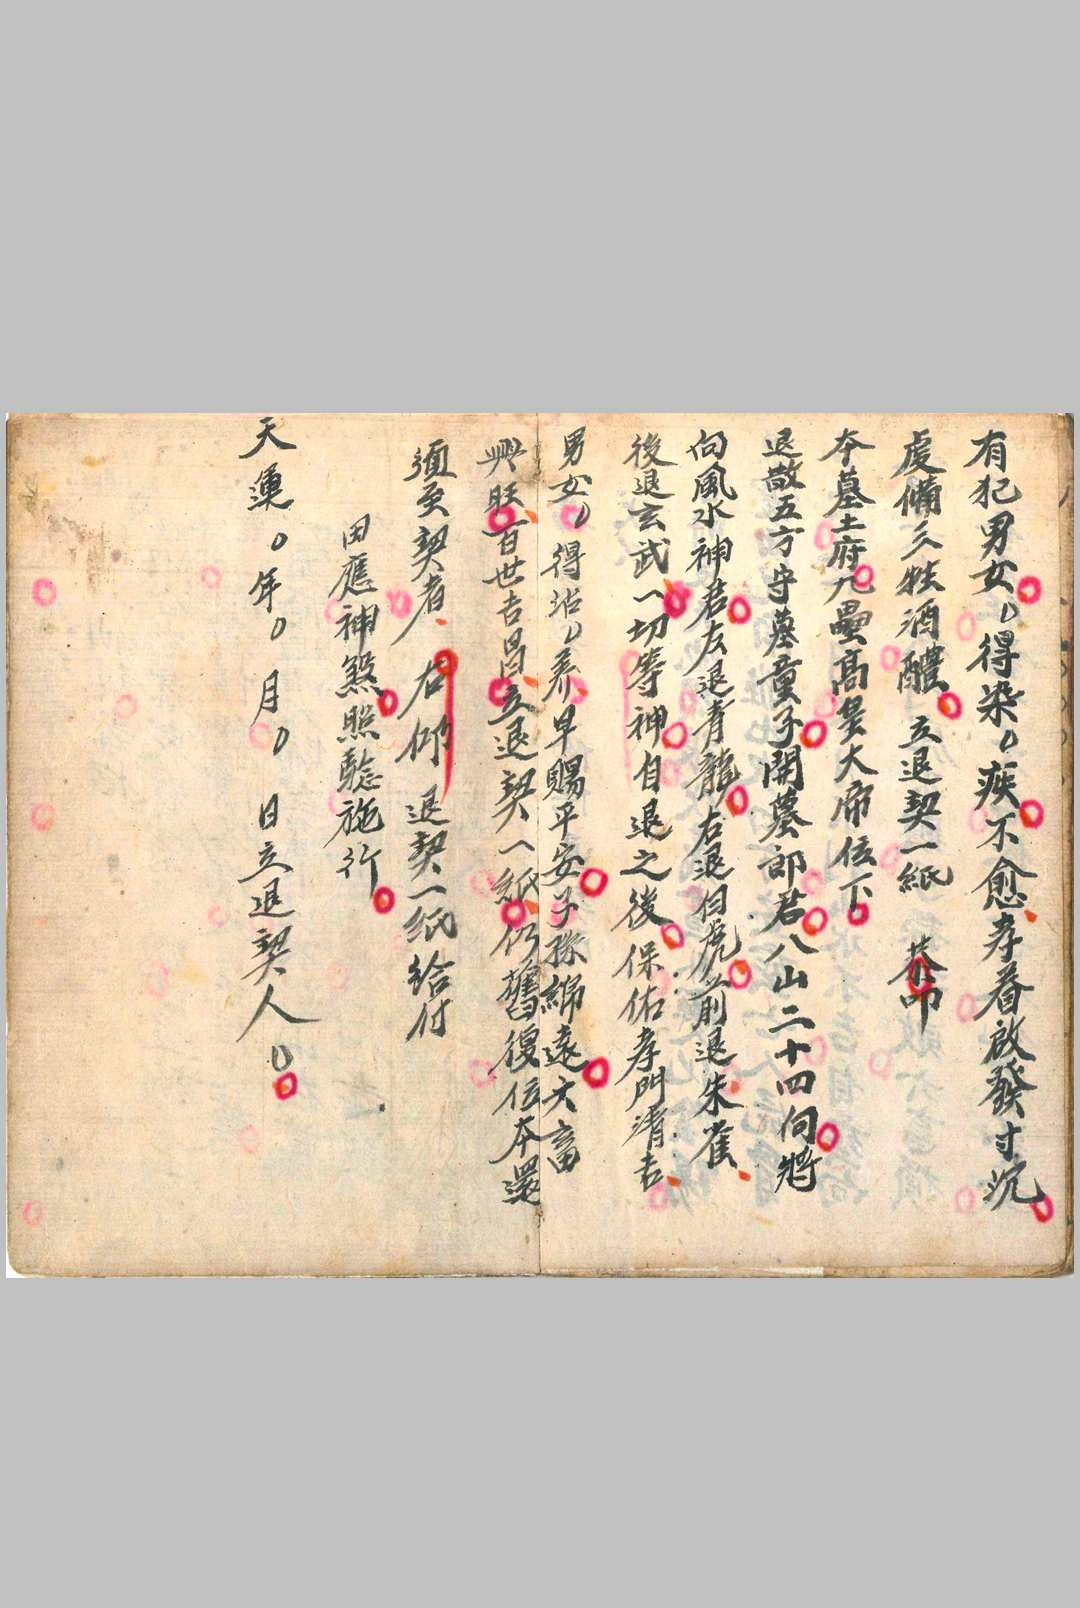 有犯男女〇得染〇疾不愈孝眷啟發寸沉
虔備三牲酒醴 立退契一紙 恭叩
本墓土府九壘高皇大帝位下
退散五方守墓童子開墓郎君八山二十四向將
向風水神君左退青龍右退白虎前退朱雀
後退玄武一切等神自退之後保佑孝門清吉
男女〇得沾〇恙早賜平安子孫綿遠六畜
興旺百世吉昌立退契一紙仍舊復位本還
須至契者 右仰退契一紙給付
田應神煞照驗施行
天運〇年〇月〇日立退契人〇